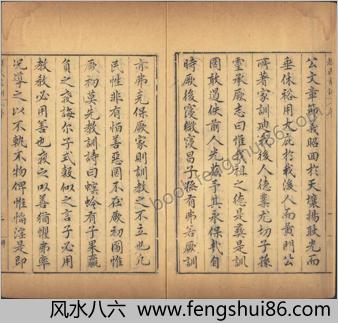 公文章節義昭回於天壤揚耿光而
垂休裕用才庇於我後人而黃門公
啻著家訓迪爾後人德業尤切子孫
靈承厥志曰惟我祖之德是彝是訓
罔敢過佚前人光爲予其永保哉自
時厥後寖繼寖昌子孫有弗若厥訓
亦弗克保厥家則訓教之不立也凡
民性非有恒善惡罔不在厥初圖惟
厥初莫先教訓詩曰螟蛉有子果蠃
負之教誨爾子式穀似之言子必用
教教必用善也教之以善猶懼弗率
況導之以不軌不物俾惟慆淫是即
风水八六 www.fengshui86.com